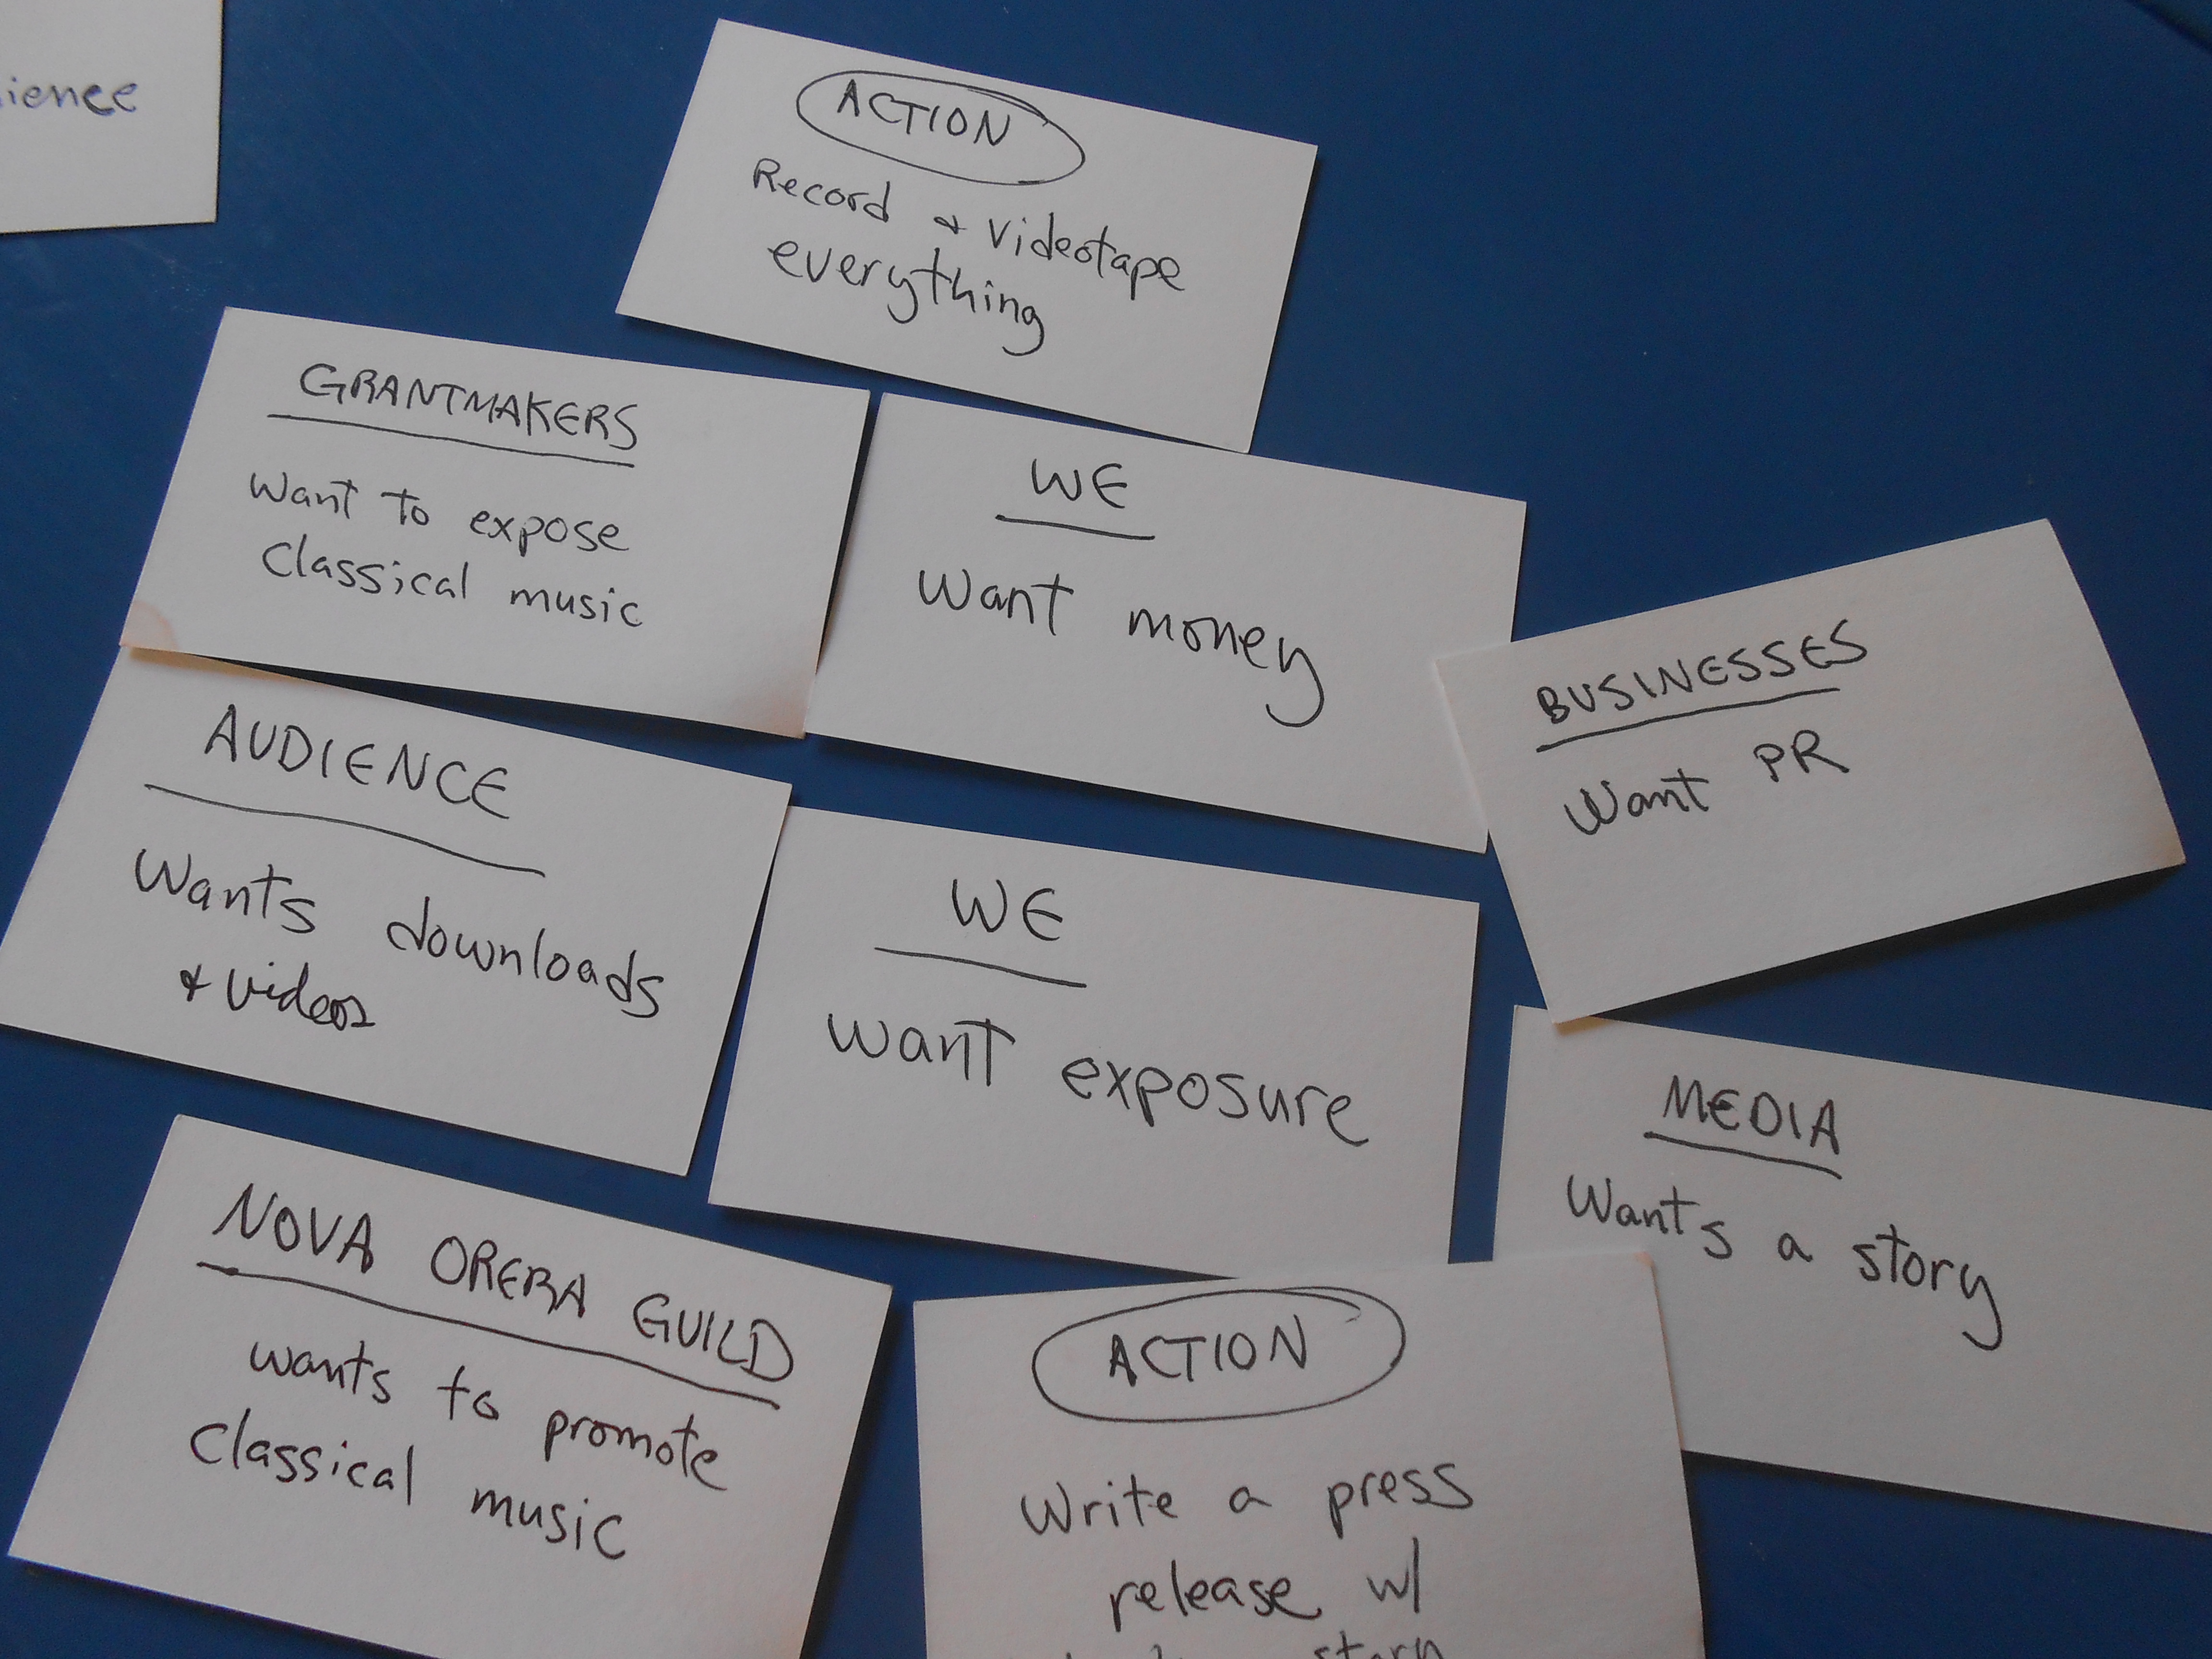 ACTION
Record & Videotape
everything
GRANTMAKERS
Want to expose
Classical music
WE
Want money
BUSINESSES
Want PR
AUDIENCE
Wants downloads
& videos
WE
want exposure
MEDIA
Wants a story
NOVA OPERA GUILD
wants to promote
Classical music
ACTION
Write a press
release w/
story